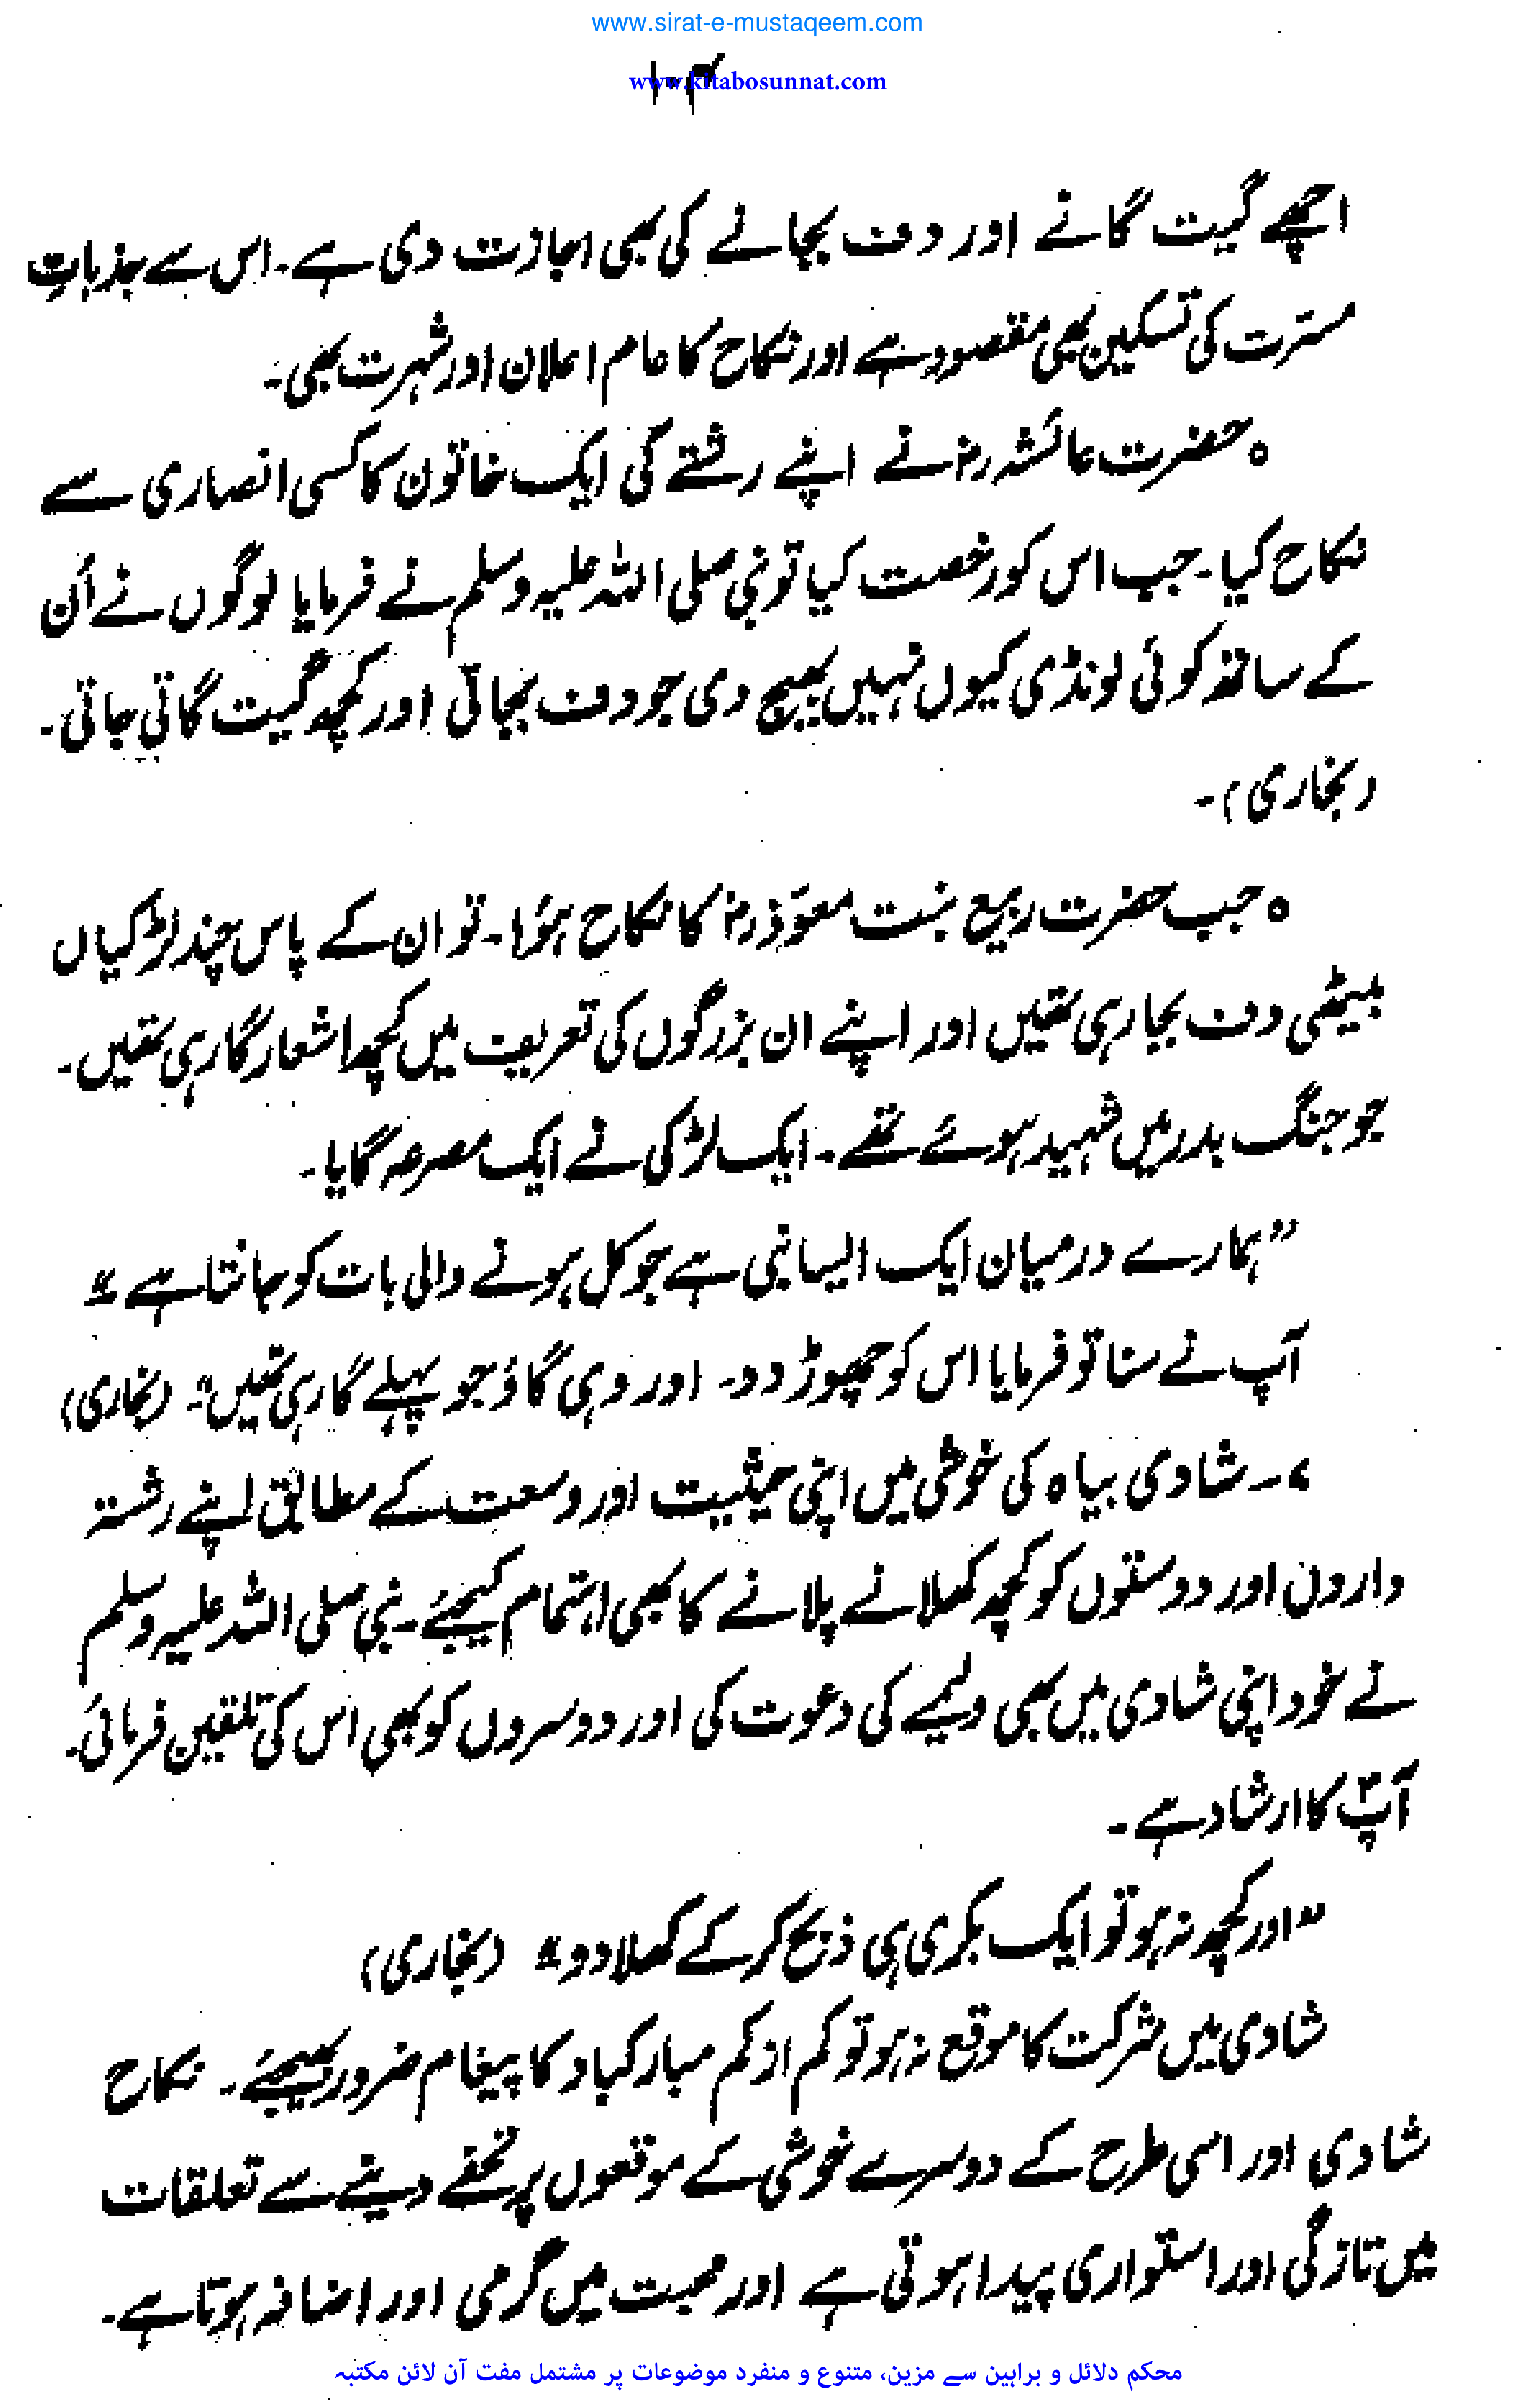 www.sirat-e-mustaqeem.com
www.kitabosunnat.com
۱۰۴
اچھے گیت گانے اور دف بجانے کی بھی اجازت دی ہے۔ اس سے جذباتِ
مسرّت کی تسکین بھی مقصود ہے اور نکاح کا عام اعلان اور شہرت بھی۔
○ حضرت عائشہ رضؓ نے اپنے رشتے کی ایک خاتون کا کسی انصاری سے
نکاح کیا۔ جب اس کو رخصت کیا تو نبی صلی اللہ علیہ وسلم نے فرمایا لوگوں نے اُن
کے ساتھ کوئی لونڈی کیوں نہیں بھیج دی جو دف بجاتی اور کچھ گیت گاتی جاتی۔
(بخاری)۔
○ جب حضرت ربیع بنت معوّذ رضؓ کا نکاح ہؤا۔ تو ان کے پاس چند لڑکیاں
بیٹھی دف بجا رہی تھیں اور اپنے ان بزرگوں کی تعریف میں کچھ اشعار گا رہی تھیں۔
جو جنگ بدر میں شہید ہوئے تھے۔ ایک لڑکی نے ایک مصرعہ گایا۔
”ہمارے درمیان ایک ایسا نبی ہے جو کل ہونے والی بات کو جانتا ہے“
آپ نے سنا تو فرمایا اس کو چھوڑ دو۔ اور وہی گاؤ جو پہلے گا رہی تھیں“۔ (بخاری)
۷۔ شادی بیاہ کی خوشی میں اپنی حیثیت اور وسعت کے مطابق اپنے رشتہ
داروں اور دوستوں کو کچھ کھلانے پلانے کا بھی اہتمام کیجئے۔ نبی صلی اللہ علیہ وسلم
نے خود اپنی شادی میں بھی ولیمے کی دعوت کی اور دوسروں کو بھی اس کی تلقین فرمائی۔
آپؐ کا ارشاد ہے۔
”اور کچھ نہ ہو تو ایک بکری ہی ذبح کر کے کھلا دو“ (بخاری)
شادی میں شرکت کا موقع نہ ہو تو کم از کم مبارکباد کا پیغام ضرور بھیجئے۔ نکاح
شادی اور اسی طرح کے دوسرے خوشی کے موقعوں پر تحفے دینے سے تعلقات
میں تازگی اور استواری پیدا ہوتی ہے اور محبت میں گرمی اور اضافہ ہوتا ہے۔
محکم دلائل و براہین سے مزین، متنوع و منفرد موضوعات پر مشتمل مفت آن لائن مکتبہ